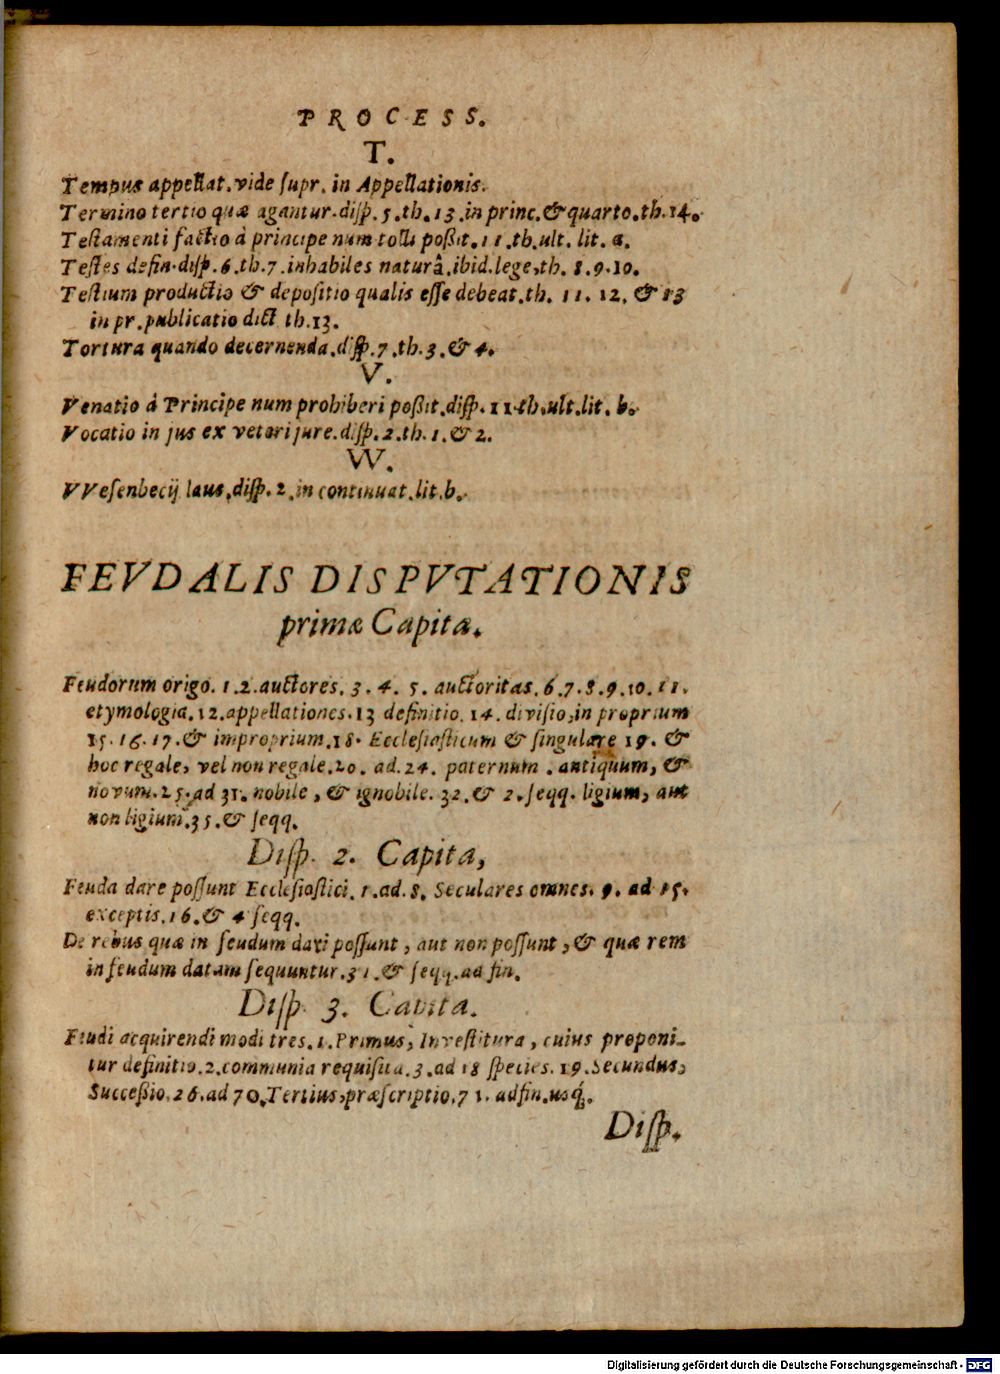 PROCESS.
T.
Tempus appellat. vide ſupr. in Appellationis.
Termino tertio quæ agantur. diſp. 5. th. 13. in princ. & quarto. th. 14.
Teſtamenti factio à principe num tolli poßit. 11. th. ult. lit. a.
Teſtes defin. diſp. 6. th. 7. inhabiles naturâ. ibid. lege, th. 8. 9. 10.
Teſtium productio & depoſitio qualis eſſe debeat. th. 11. 12. & 13
in pr. publicatio dict th. 13.
Tortura quando decernenda. diſp. 7. th. 3. & 4.
V.
Venatio à Principe num prohiberi poßit. diſp. 11. th. ult. lit. b.
Vocatio in jus ex veteri jure. diſp. 2. th. 1. & 2.
VV.
VVeſenbecij laus. diſp. 2. in continuat. lit. b.
FEVDALIS DISPVTATIONIS
primæ Capita.
Feudorum origo. 1. 2. auctores. 3. 4. 5. auctoritas. 6. 7. 8. 9. 10. 11.
etymologia. 12. appellationes. 13 definitio. 14. diviſio, in proprium
15. 16. 17. & improprium. 18. Eccleſiaſticum & ſingulare 19. &
hoc regale, vel non regale. 20. ad. 24. paternum. antiquum, &
novum. 25. ad 31. nobile, & ignobile. 32. & 2. ſeqq. ligium, aut
non ligium. 35. & ſeqq.
Diſp. 2. Capita,
Feuda dare poſſunt Eccleſiaſtici. 1. ad. 8. Seculares omnes. 9. ad 15.
exceptis. 16. & 4 ſeqq.
De rebus quæ in feudum dari poſſunt, aut non poſſunt, & quæ rem
in feudum datam ſequuntur. 31. & ſeqq. ad fin.
Diſp. 3. Capita.
Feudi acquirendi modi tres. 1. Primus, Inveſtitura, cuius proponi-
tur definitio. 2. communia requiſita. 3. ad 18 ſpecies. 19. Secundus,
Succeßio. 26. ad 70. Tertius, præſcriptio. 71. ad fin. usq́.
Diſp.
Digitalisierung gefördert durch die Deutsche Forschungsgemeinschaft - DFG